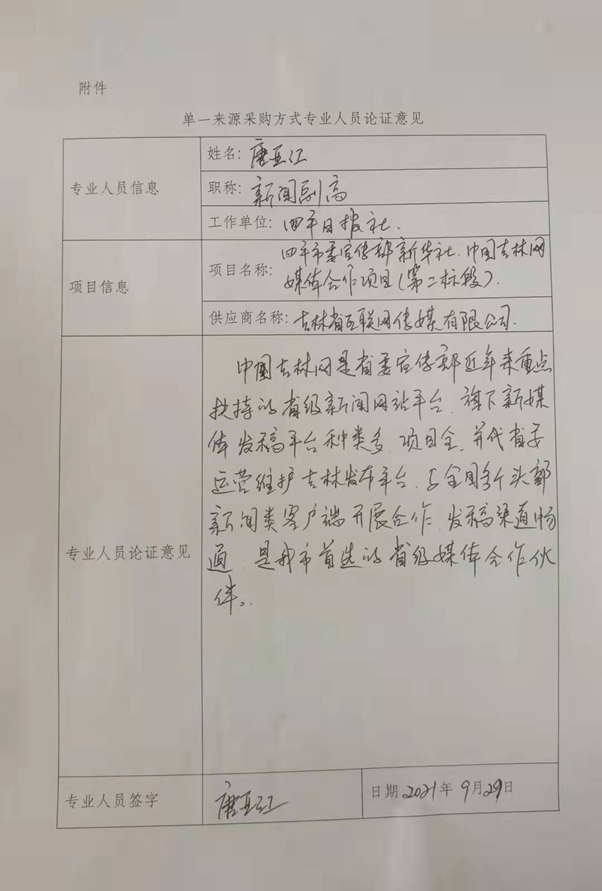 附件
单一来源采购方式专业人员论证意见
专业人员信息
姓名：唐亚江
职称：新闻副高
工作单位：四平日报社.
项目信息
项目名称：四平市委宣传部新华社.中国吉林网
媒体合作项目(第二标段).
供应商名称：吉林省互联网传媒有限公司.
专业人员论证意见
中国吉林网是省委宣传部近年来重点
扶持的省级新闻网站平台.旗下新媒
体发稿平台种类多.项目全.并代省委
运营维护吉林发布平台.与全国多个头部
新闻类客户端开展合作.发稿渠道畅
通.是我市首选的省级媒体合作伙
伴。
专业人员签字
唐亚江
日期 2021年 9月29日